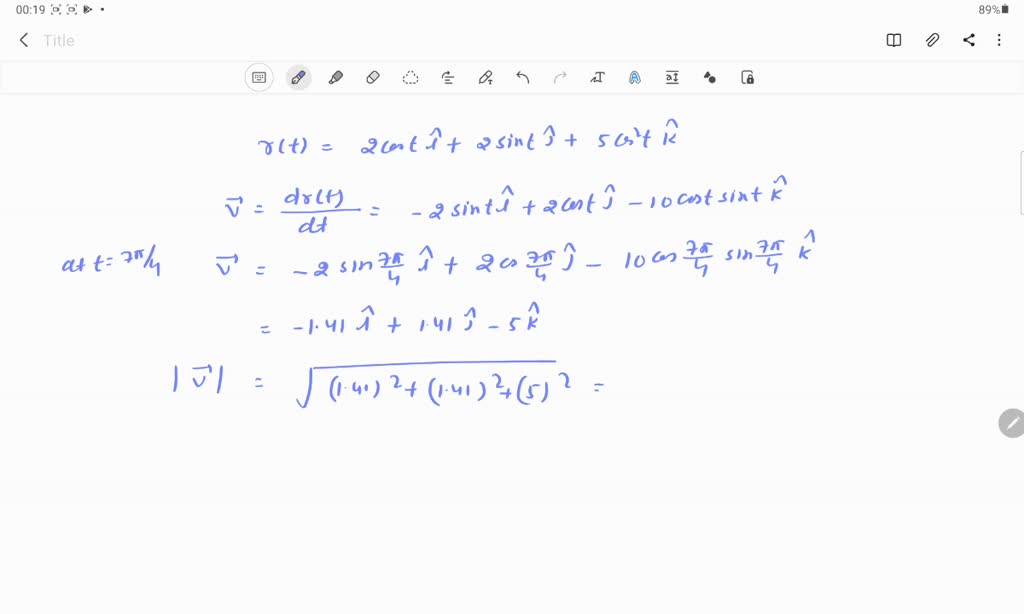 00:19
89%
Title
r(t) = 2cost î + 2sint ĵ + 5cos²t k̂
v⃗ = dr(t)/dt = -2sint î + 2cost ĵ - 10cost sint k̂
at t = 7π/4 v⃗ = -2 sin 7π/4 î + 2cos 7π/4 ĵ - 10cos 7π/4 sin 7π/4 k̂
= -1.41 î + 1.41 ĵ - 5 k̂
|v⃗| = √((1.41)² + (1.41)² + (5)²) =